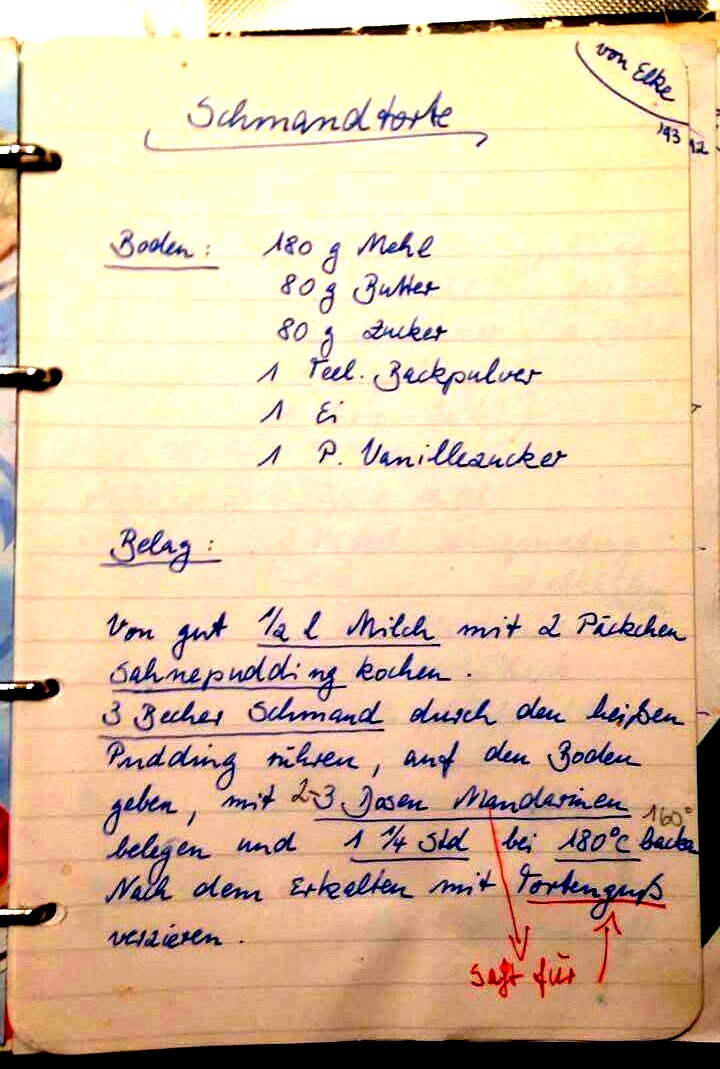 von Elke
'93 12
Schmandtorte
Boden: 180 g Mehl
80 g Butter
80 g Zucker
1 Teel. Backpulver
1 Ei
1 P. Vanillezucker
Belag:
Von gut 1/2 l Milch mit 2 Päckchen
Sahnepudding kochen.
3 Becher Schmand durch den heißen
Pudding rühren, auf den Boden
geben, mit 2-3 Dosen Mandarinen
160°
belegen und 1 1/4 Std bei 180°C backen
Nach dem Erkalten mit Tortenguß
verzieren.
Saft für